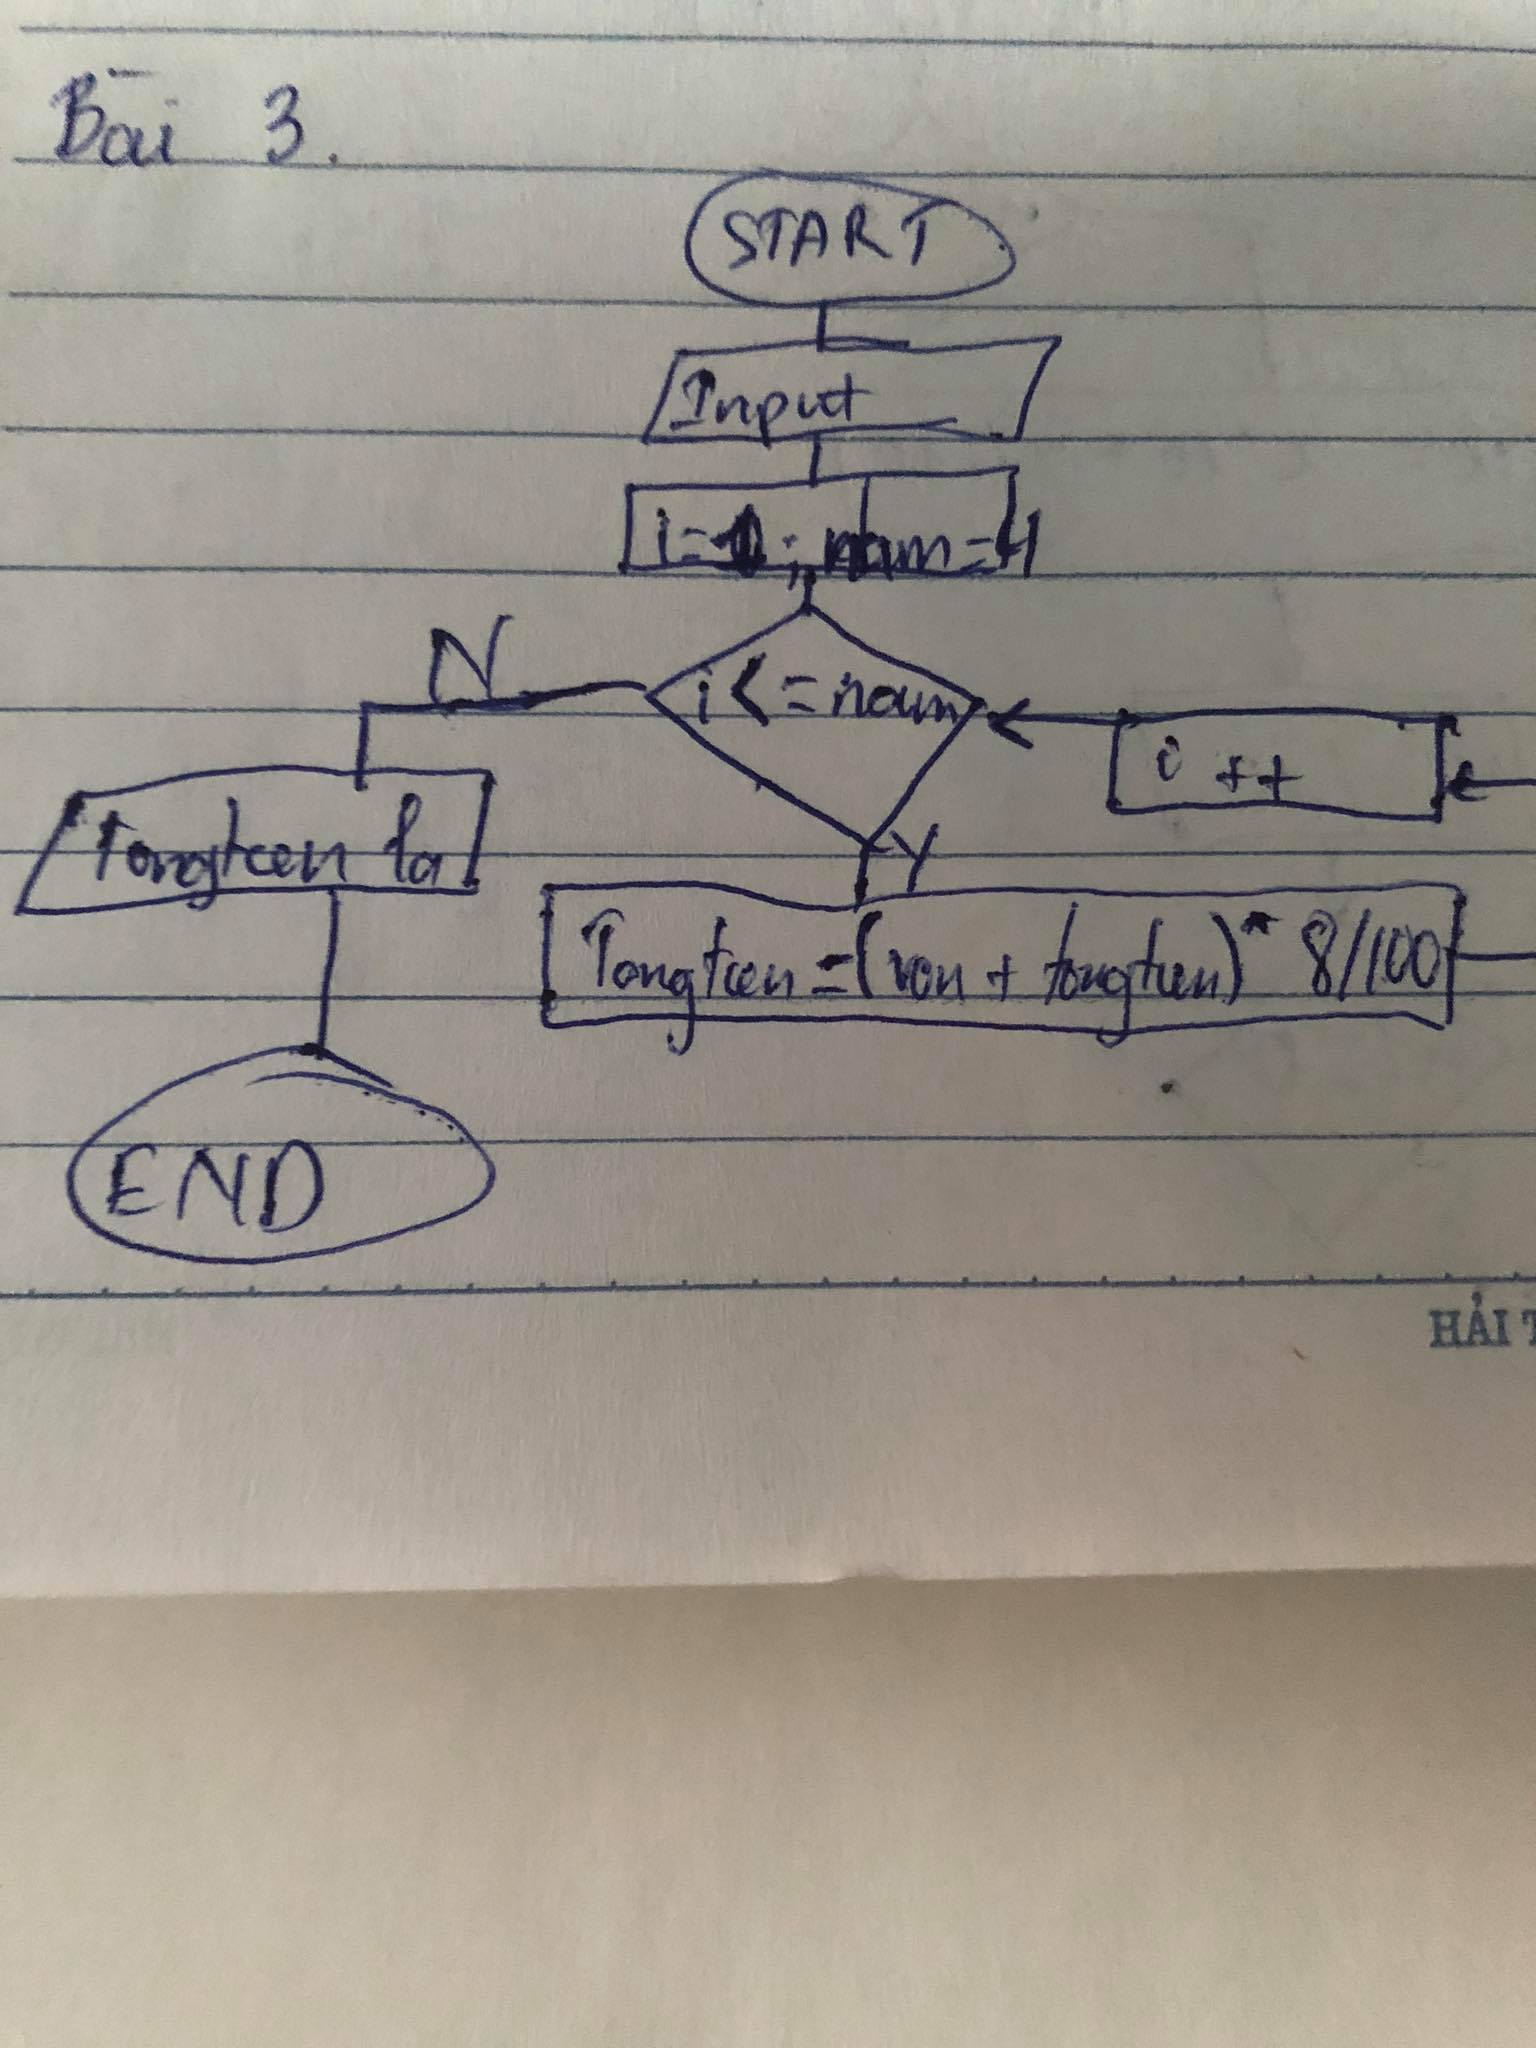 Bài 3.
START
Input
i=1; nam=4
N
i<=nam
i ++
Tongtien la
Y
Tongtien =(von + tongtien)* 8/100
END
HẢI T